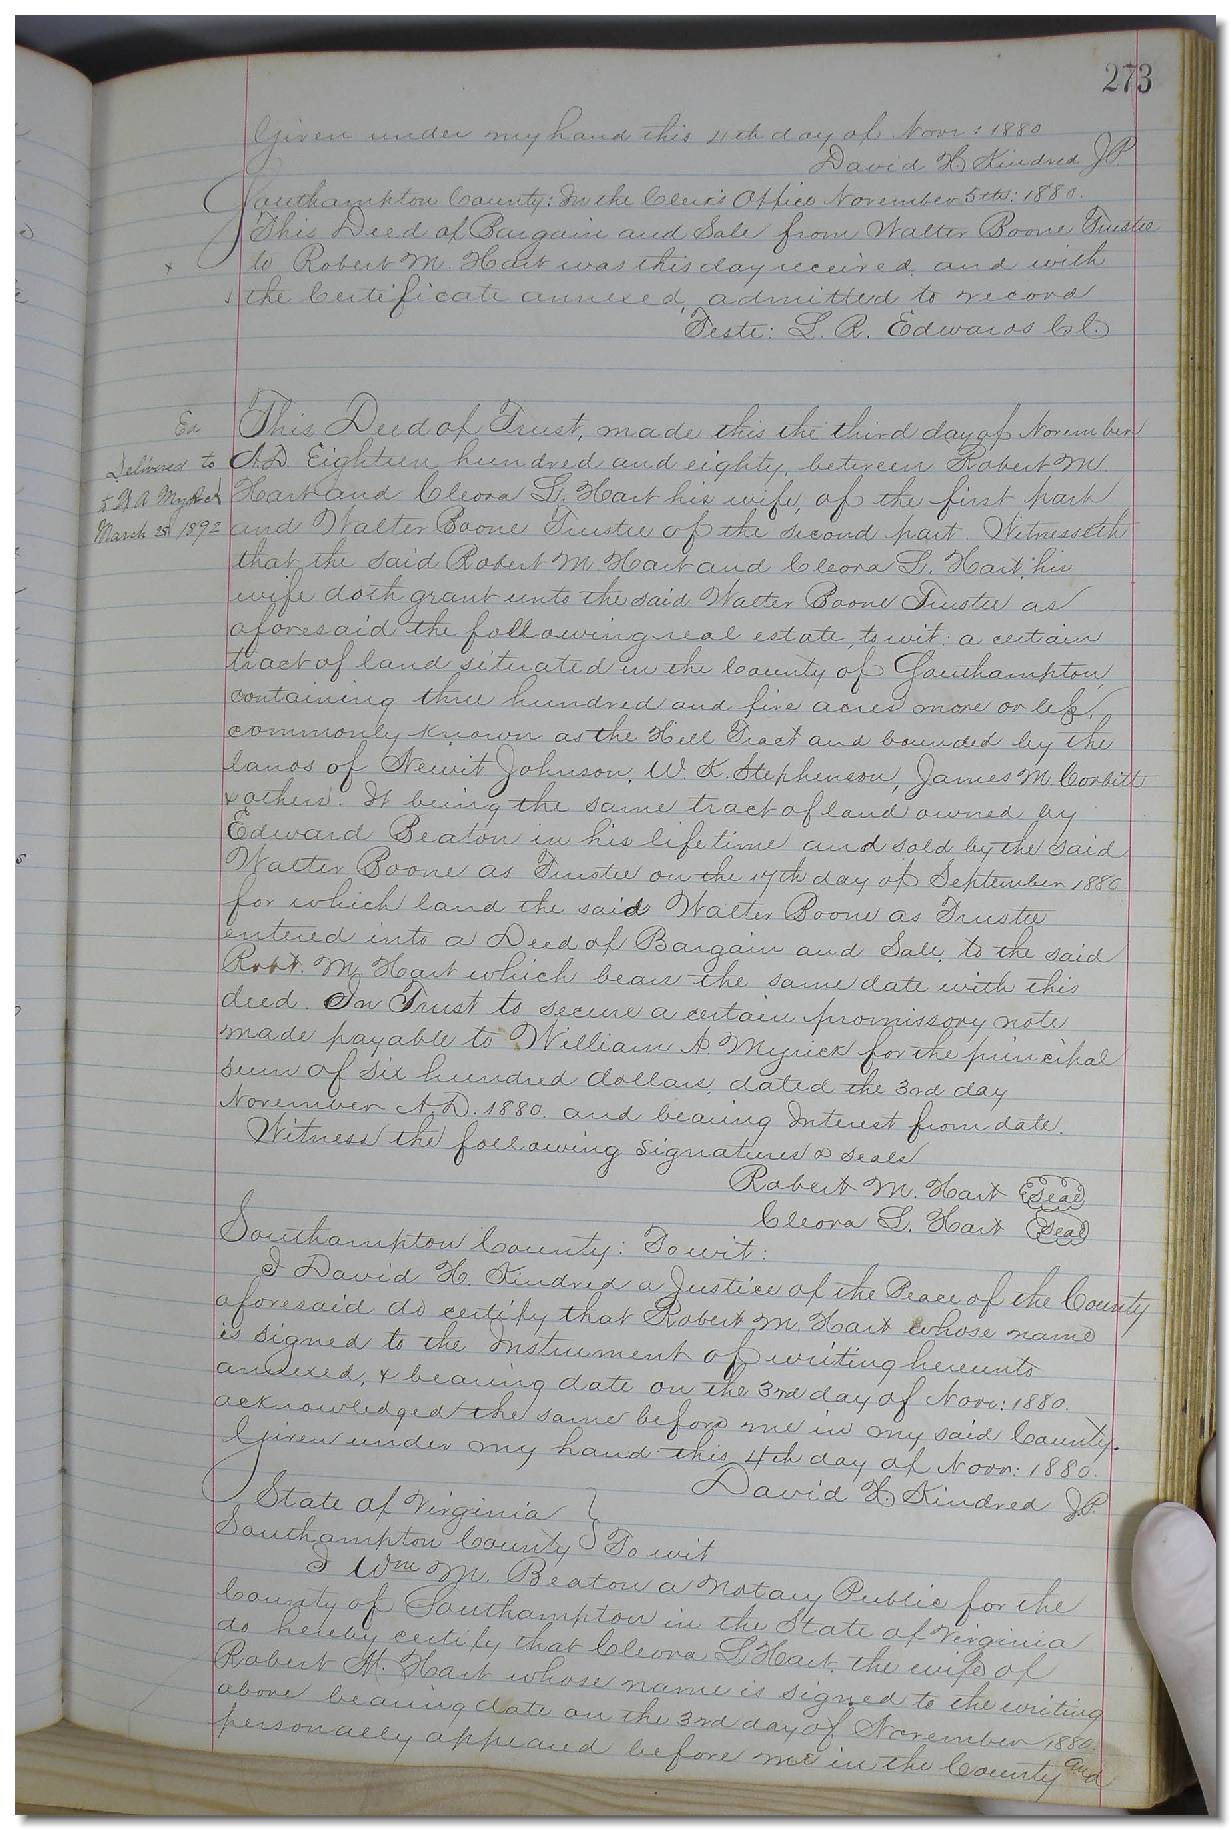 273
Given under my hand this 4th day of Novr: 1880
David H. Kindred J.P.
Southampton County: In the Clerk's Office November 5th: 1880.
This Deed of Bargain and Sale from Walter Boone Trustee
to Robert M. Hart was this day received, and with
the Certificate annexed, admitted to record
Teste: L. R. Edwards Cl.
Ex
Delivered to
A Myrick
March 28 1892
This Deed of Trust, made this the third day of November
A.D. Eighteen hundred and eighty, between Robert M.
Hart and Cleora L. Hart his wife, of the first part
and Walter Boone Trustee of the second part. Witnesseth
that the said Robert M. Hart and Cleora L. Hart, his
wife doth grant unto the said Walter Boone Trustee as
aforesaid the following real estate, to wit: a certain
tract of land situated in the County of Southampton,
containing three hundred and five acres more or less,
commonly known as the Hill Tract and bounded by the
lands of Newit Johnson, W. K. Stephenson, James M. Corbitt
& others. It being the same tract of land owned by
Edward Beaton in his lifetime and sold by the said
Walter Boone as Trustee on the 17th day of September 1880
for which land the said Walter Boone as Trustee
entered into a Deed of Bargain and Sale, to the said
Robt. M. Hart which bears the same date with this
deed. In Trust to secure a certain promissory note
made payable to William A. Myrick for the principal
sum of six hundred dollars, dated the 3rd day
November A.D. 1880. and bearing Interest from date.
Witness the following signatures & seals
Robert M. Hart Seal
Cleora L. Hart Seal
Southampton County: To wit:
I David H. Kindred a Justice of the Peace of the County
aforesaid do certify that Robert M. Hart whose name
is signed to the Instrument of writing hereunto
annexed, & bearing date on the 3rd day of Novr: 1880.
acknowledged the same before me in my said County.
Given under my hand this 4th day of Novr: 1880.
David H. Kindred J.P.
State of Virginia
Southampton County } To wit
I Wm M. Beaton a Notary Public for the
County of Southampton in the State of Virginia
do hereby certify that Cleora L Hart, the wife of
Robert M. Hart whose name is signed to the writing
above bearing date on the 3rd day of November 1880.
personally appeared before me in the County and